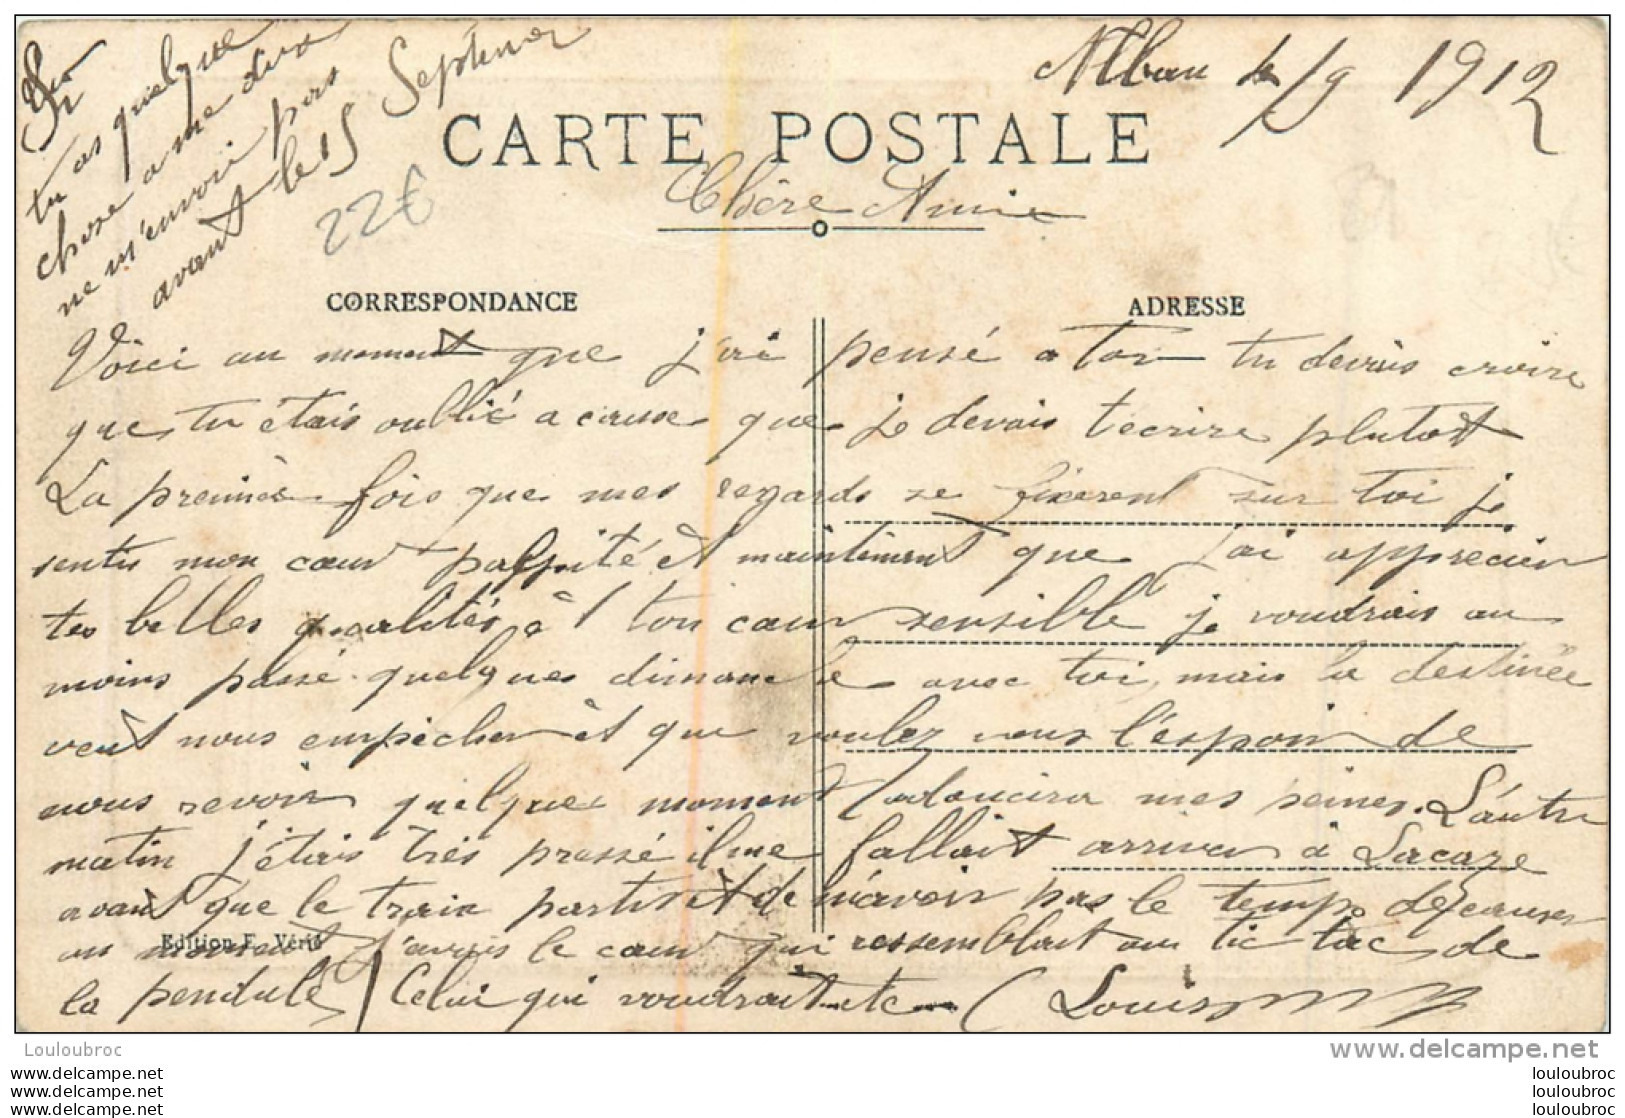 Alban le 1/9 1912
Si
tu as quelque
chose a me dire
ne m'envoi pas
avant le 15 Septembre
22€
CARTE POSTALE
Chère Amie
CORRESPONDANCE
ADRESSE
Voici un moment que j'ai pensé a toi tu devais croire
que tu étais oublié a cause que je devais t'ecrire plutot
La première fois que mes regards se fixerent sur toi je
sentis mon cœur palpité et maintenant que j'ai apprecier
tes belles qualités è t ton cœur sensible je voudrais au
moins passé quelques dimanche avec toi, mais la destinée
veut nous empécher èt que voulez vous l'éspoir de
nous revoir quelques moment adoucira mes peines. L'autre
matin j'étais très pressé il me fallait arriver à Lacaze
avant que le train partit et de n'avoir pas le temps de causer
un moment j'avais le cœur qui ressemblait au tic tac de
la pendule / Celui qui voudrait etc (Louis
Edition F. Vérié
Louloubroc
www.delcampe.net
louloubroc
louloubroc
louloubroc
louloubroc
louloubroc
louloubroc